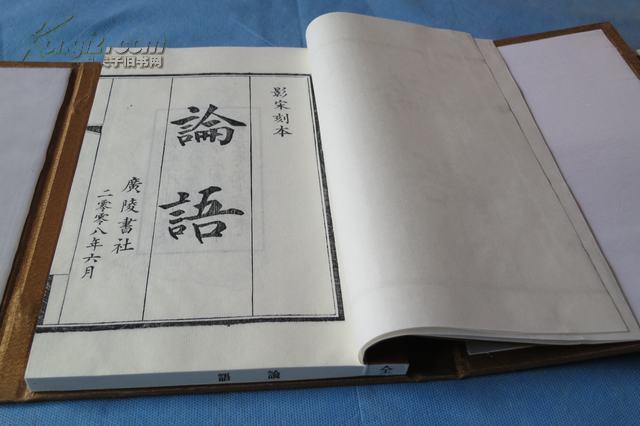 Kongfz.com
孔夫子旧书网
影宋刻本
論語
廣陵書社
二零零八年六月
論語
全